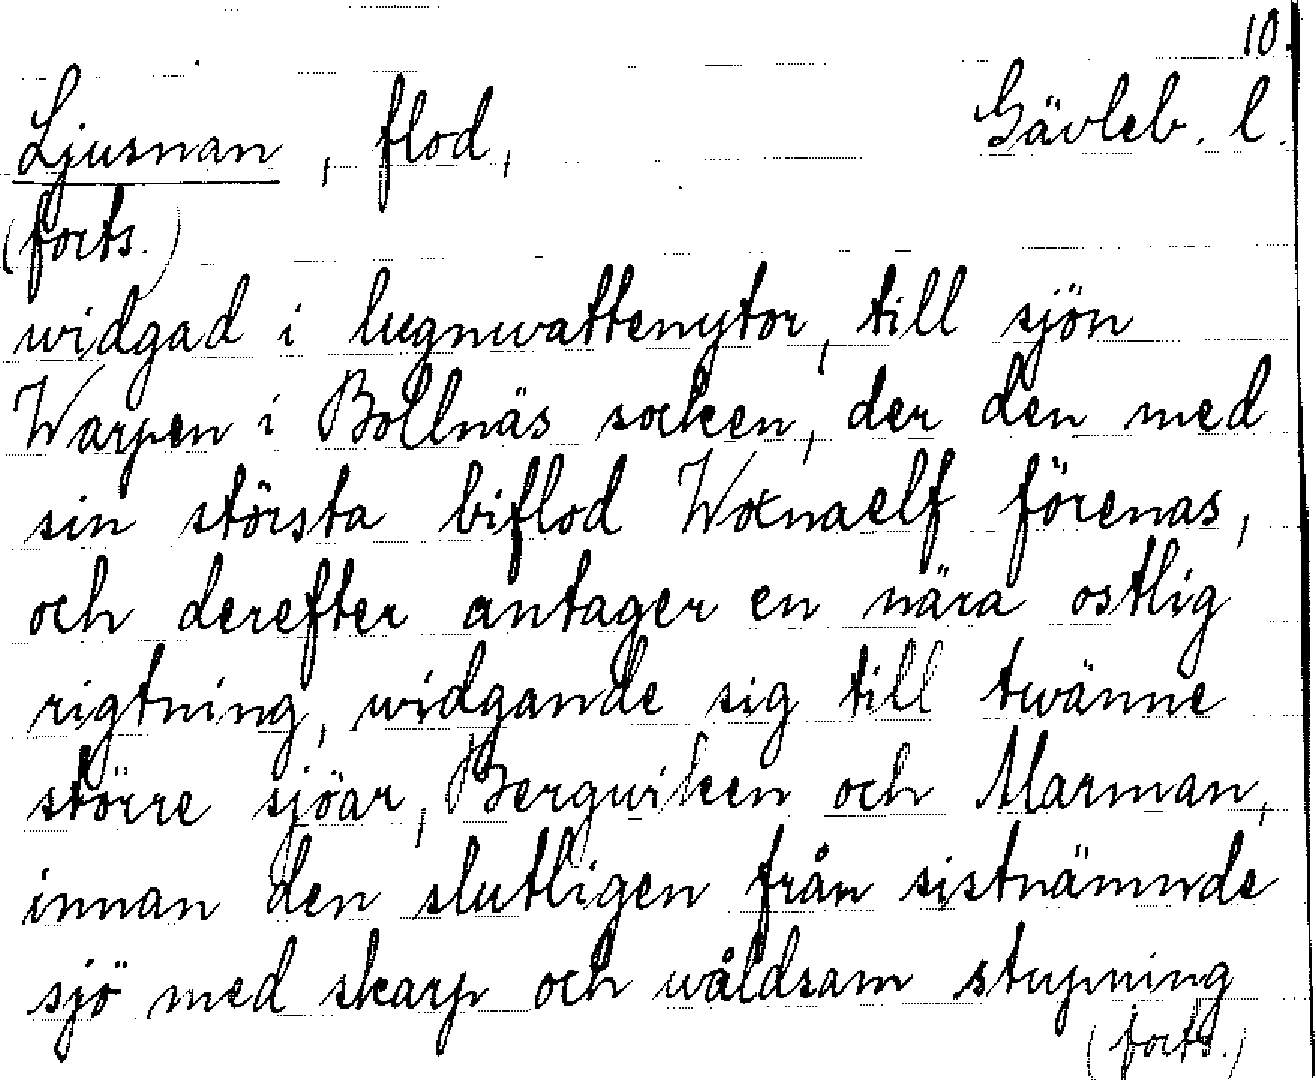 10.
Ljusnan, flod, Gävleb. l.
(forts.)
widgad i lugnwattenytor, till sjön
Warpen i Bollnäs socken, der den med
sin största biflod Woxnaelf förenas,
och derefter antager en nära ostlig
rigtning, widgande sig till twänne
större sjöar, Bergwiken och Marman,
innan den slutligen från sistnämnde
sjö med skarp och wåldsam stupning
(forts.)